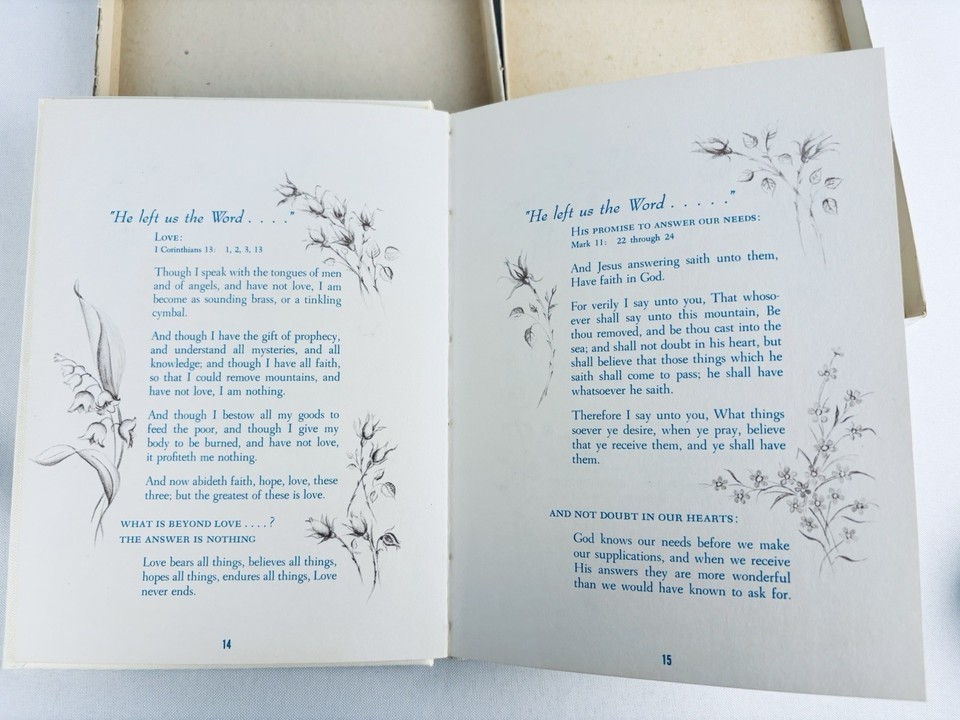 "He left us the Word . . . ."
LOVE:
I Corinthians 13: 1, 2, 3, 13
Though I speak with the tongues of men
and of angels, and have not love, I am
become as sounding brass, or a tinkling
cymbal.
And though I have the gift of prophecy,
and understand all mysteries, and all
knowledge; and though I have all faith,
so that I could remove mountains, and
have not love, I am nothing.
And though I bestow all my goods to
feed the poor, and though I give my
body to be burned, and have not love,
it profiteth me nothing.
And now abideth faith, hope, love, these
three; but the greatest of these is love.
WHAT IS BEYOND LOVE . . . . ?
THE ANSWER IS NOTHING
Love bears all things, believes all things,
hopes all things, endures all things, Love
never ends.
14
"He left us the Word . . . . ."
HIS PROMISE TO ANSWER OUR NEEDS:
Mark 11: 22 through 24
And Jesus answering saith unto them,
Have faith in God.
For verily I say unto you, That whoso-
ever shall say unto this mountain, Be
thou removed, and be thou cast into the
sea; and shall not doubt in his heart, but
shall believe that those things which he
saith shall come to pass; he shall have
whatsoever he saith.
Therefore I say unto you, What things
soever ye desire, when ye pray, believe
that ye receive them, and ye shall have
them.
AND NOT DOUBT IN OUR HEARTS:
God knows our needs before we make
our supplications, and when we receive
His answers they are more wonderful
than we would have known to ask for.
15